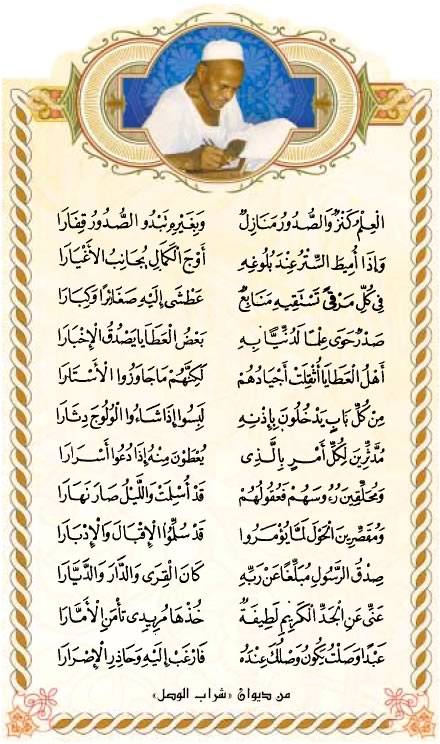 الْعِلْمُ كَنْزٌ وَالصُّدُورُ مَنَازِلٌ وَبِغَيْرِهِ تَبْدُو الصُّدُورُ قِفَارَا
وَإِذَا أُمِيطَ السِّتْرُ عِنْدَ بُلُوغِهِ أَوْجَ الْكَمَالِ يُجَانِبُ الْأَغْيَارَا
فِي كُلِّ مَرْقًى تَسْتَقِيهِ مَنَابِعٌ عَطْشَى إِلَيْهِ صَغَائِرًا وَكِبَارَا
صَدْرٌ حَوَى عِلْمًا لَدُنِّيًّا بِهِ بَعْضُ الْعَطَايَا يَصْدُقُ الْإِخْبَارَا
أَهْلُ الْعَطَايَا أُثْقِلَتْ أَجْيَادُهُمْ لَكِنَّهُمْ مَا جَاوَزُوا الْأَسْتَارَا
مِنْ كُلِّ بَابٍ يَدْخُلُونَ بِإِذْنِهِ لَبِسُوا إِذَا شَاءُوا الْوُلُوجَ دِثَارَا
مُدَّثِّرِينَ لِكُلِّ أَمْرٍ بِالَّذِي يُعْطَوْنَ مِنْهُ إِذَا دُعُوا أَسْرَارَا
وَمُحَلِّقِينَ رُءُوسَهُمْ فَعُقُولُهُمْ قَدْ أُسْلِتَتْ وَاللَّيْلُ صَارَ نَهَارَا
وَمُقَصِّرِينَ الْحَوْلَ لَمَّا يُؤْمَرُوا قَدْ سُلِّوُا الْإِقْبَالَ وَالْإِدْبَارَا
صِدْقُ الرَّسُولِ مُبَلِّغًا عَنْ رَبِّهِ كَانَ الْقِرَى وَالدَّارَ وَالدَّيَّارَا
عَنِّي عَنِ الْجَدِّ الْكَرِيمِ لَطِيفَةٌ خُذْهَا مُرِيدِي تَأْمَنِ الْأَمَّارَا
عَبْدًا وَصَلْتُ يَكُونُ وَصْلُكَ عِنْدَهُ فَارْغَبْ إِلَيْهِ وَحَاذِرِ الْإِصْرَارَا
من ديوان «شراب الوصل»